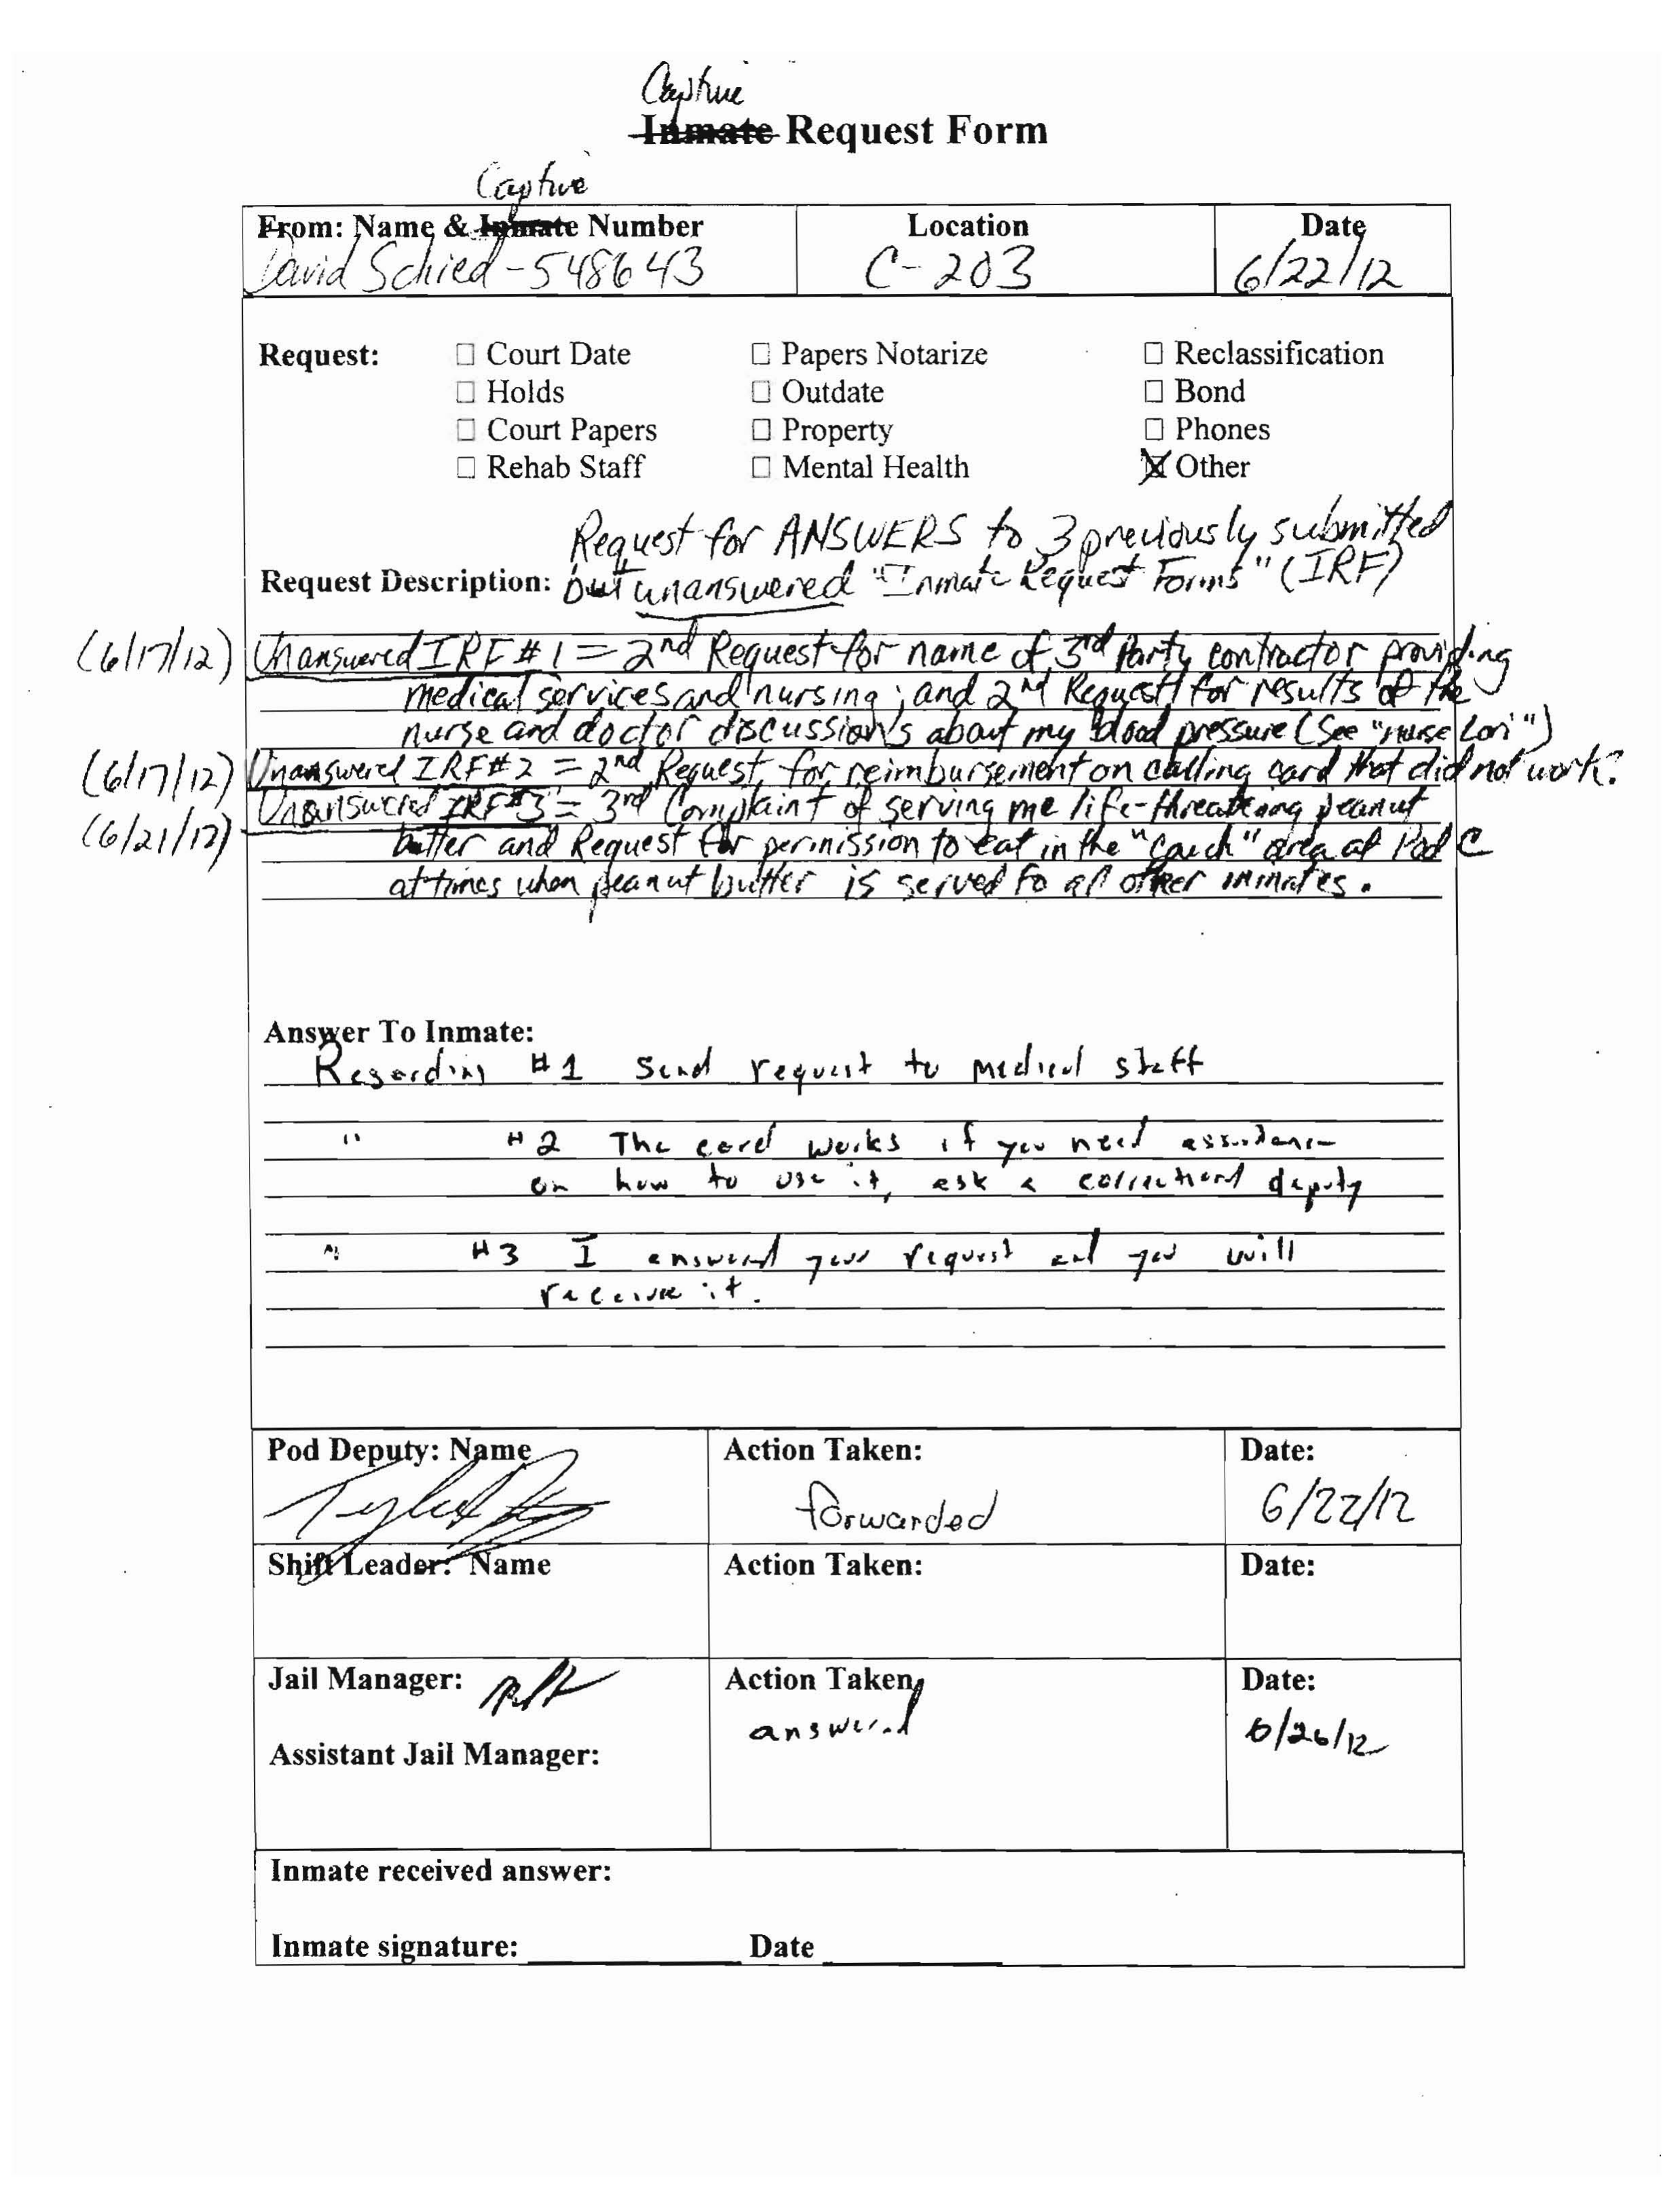 Captive
Inmate Request Form
Captive
From: Name & Inmate Number Location Date
David Schied - 548643 C-203 6/22/12
Request: ☐ Court Date ☐ Papers Notarize ☐ Reclassification
☐ Holds ☐ Outdate ☐ Bond
☐ Court Papers ☐ Property ☐ Phones
☐ Rehab Staff ☐ Mental Health ☒ Other
Request for ANSWERS to 3 previously submitted
Request Description: but unanswered "Inmate Request Forms" (IRF)
(6/17/12) Unanswered IRF #1 = 2nd Request for name of 3rd Party contractor providing
medical services and nursing; and 2nd Request for results of the
nurse and doctor discussions about my blood pressure (See "nurse Lori")
(6/17/12) Unanswered IRF #2 = 2nd Request for reimbursement on calling card that did not work.
Unanswered IRF #3 = 3rd Complaint of serving me life-threatening peanut
(6/21/12) butter and Request for permission to eat in the "couch" area of Pod C
at times when peanut butter is served to all other inmates.
Answer To Inmate:
Regarding #1 Send request to medical staff
" #2 The card works if you need assistance
on how to use it, ask a corrections deputy
" #3 I answered your request and you will
receive it.
Pod Deputy: Name Action Taken: Date:
forwarded 6/22/12
Shift Leader: Name Action Taken: Date:
Jail Manager: Action Taken: Date:
answered 6/26/12
Assistant Jail Manager:
Inmate received answer:
Inmate signature: Date